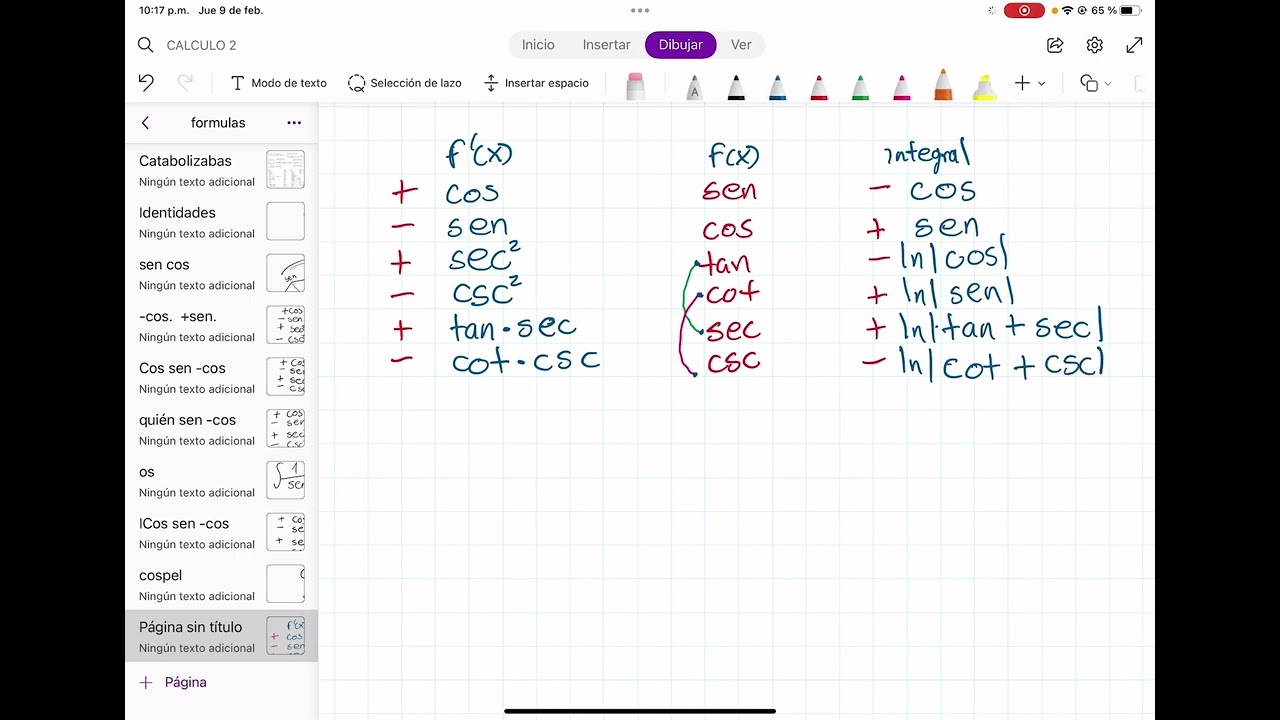 10:17 p.m. Jue 9 de feb.
65 %
CALCULO 2
Inicio Insertar Dibujar Ver
Modo de texto Selección de lazo Insertar espacio
A
formulas
Catabolizabas
Ningún texto adicional
Identidades
Ningún texto adicional
sen cos
Ningún texto adicional
-cos. +sen.
Ningún texto adicional
Cos sen -cos
Ningún texto adicional
quién sen -cos
Ningún texto adicional
os
Ningún texto adicional
lCos sen -cos
Ningún texto adicional
cospel
Ningún texto adicional
Página sin título
Ningún texto adicional
Página
f'(x) f(x) integral
+ cos sen - cos
- sen cos + sen
+ sec² tan - ln|cos|
- csc² cot + ln|sen|
+ tan · sec sec + ln|tan + sec|
- cot · csc csc - ln|cot + csc|